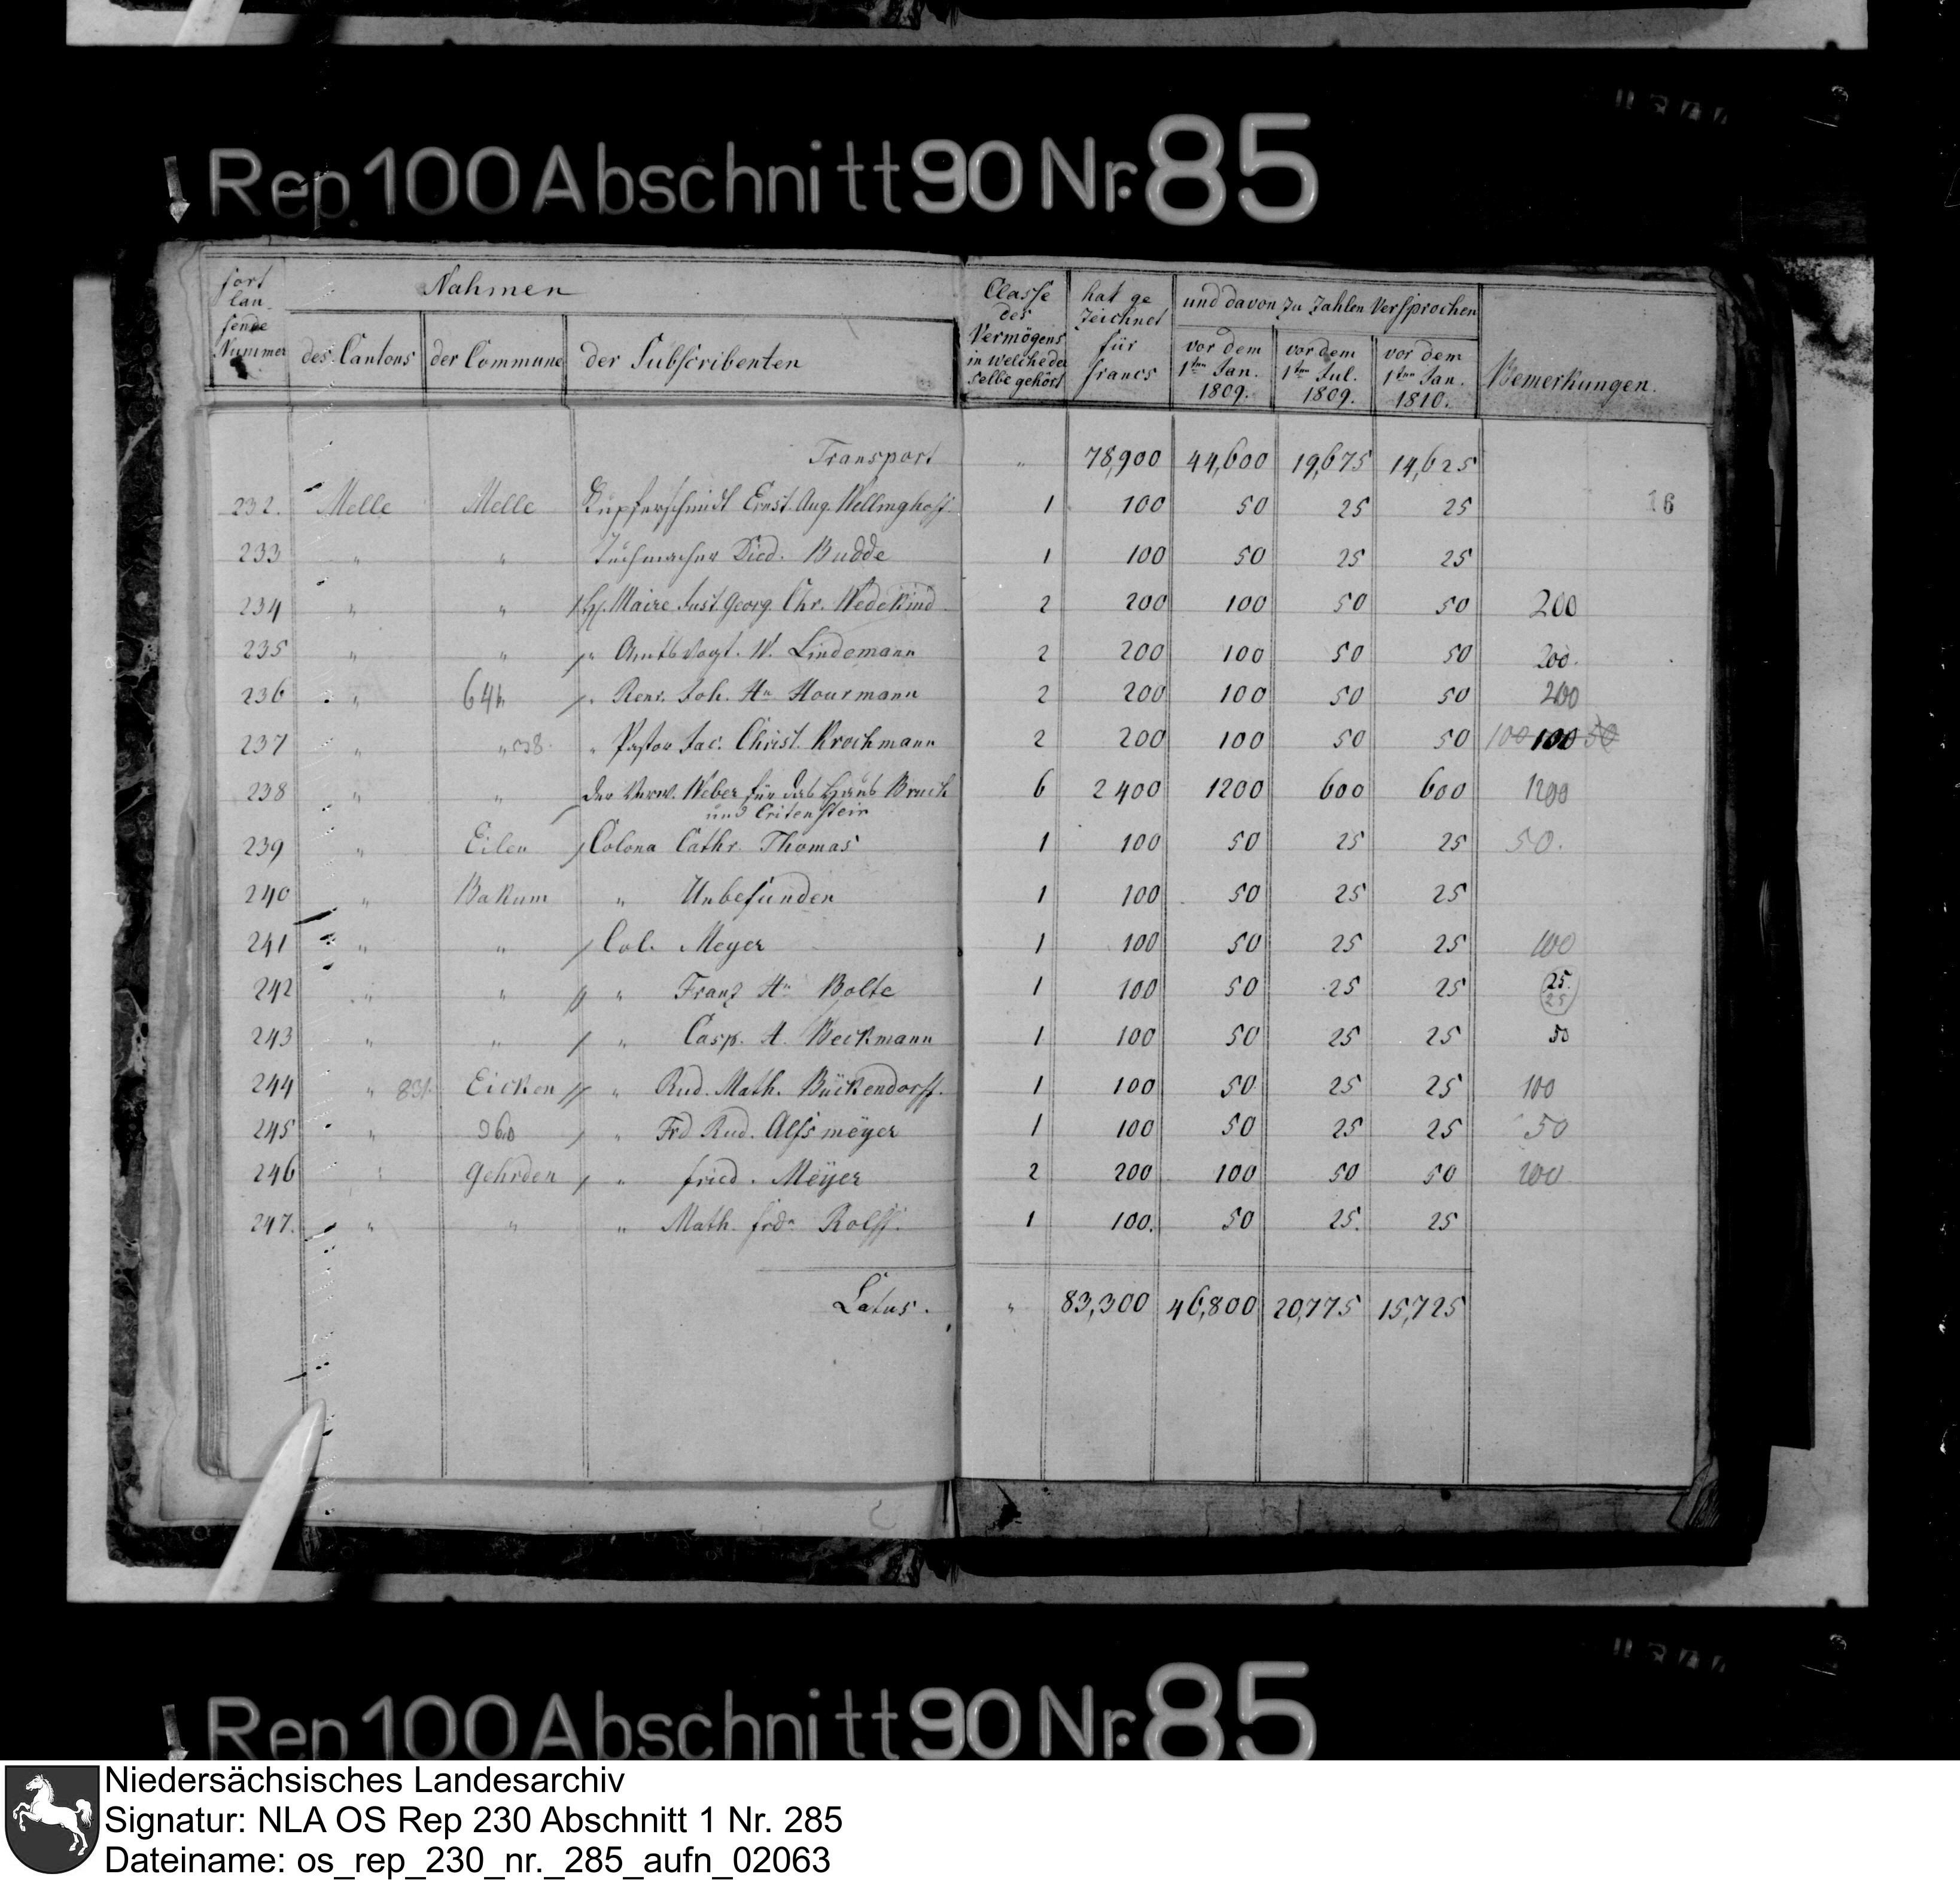 Rep 100 Abschnitt 90 Nr. 85
fort lau- fende Nummer
Nahmen
des Cantons
der Commune
der Subscribenten
Classe des Vermögens in welche der selbe gehört
hat ge zeichnet für francs
und davon zu zahlen versprochen
vor dem 1ten Jan. 1809.
vor dem 1ten Jul. 1809.
vor dem 1ten Jan. 1810.
Bemerkungen.
Transport " 78,900 44,600 19,675 14,625
232. Melle Melle Kupferschmidt Ernst. Aug. Wellinghoff 1 100 50 25 25
16
233 " " Tuchmacher Died. Budde 1 100 50 25 25
234 " " H. Maire Just. Georg. Chr. Wedekind 2 200 100 50 50 200
235 " " " Amts Vogt. W. Lindemann 2 200 100 50 50 200.
236 " 64 " " Joh. Hn Hourmann 2 200 100 50 50 200
237 " " 38. " Pastor Jac. Christ. Krochmann 2 200 100 50 50 100 100 50
238 " " der Verw. Weber für das Haus Bruch 6 2400 1200 600 600 1200
und Critenstein
239 " Eilen Colona Cathr. Thomas 1 100 50 25 25 50.
240 " Bakum " Unbefunden 1 100 50 25 25
241 " " Col. Meyer 1 100 50 25 25 100
242 " " " Franz Hn Bolte 1 100 50 25 25 25.
25
243 " " " Casp. H. Beckmann 1 100 50 25 25 50
244 " 831. Eicken " Rud. Math. Bückendorff. 1 100 50 25 25 100
245 " 360 " Frd Rud. Alfsmeÿer 1 100 50 25 25 50
246 " Gehrden " fried. Meÿer 2 200 100 50 50 200
247. " " " Math. frdr Rolff. 1 100. 50 25. 25
Latus. " 83,300 46,800 20,775 15,725
Rep 100 Abschnitt 90 Nr. 85
Niedersächsisches Landesarchiv
Signatur: NLA OS Rep 230 Abschnitt 1 Nr. 285
Dateiname: os_rep_230_nr._285_aufn_02063